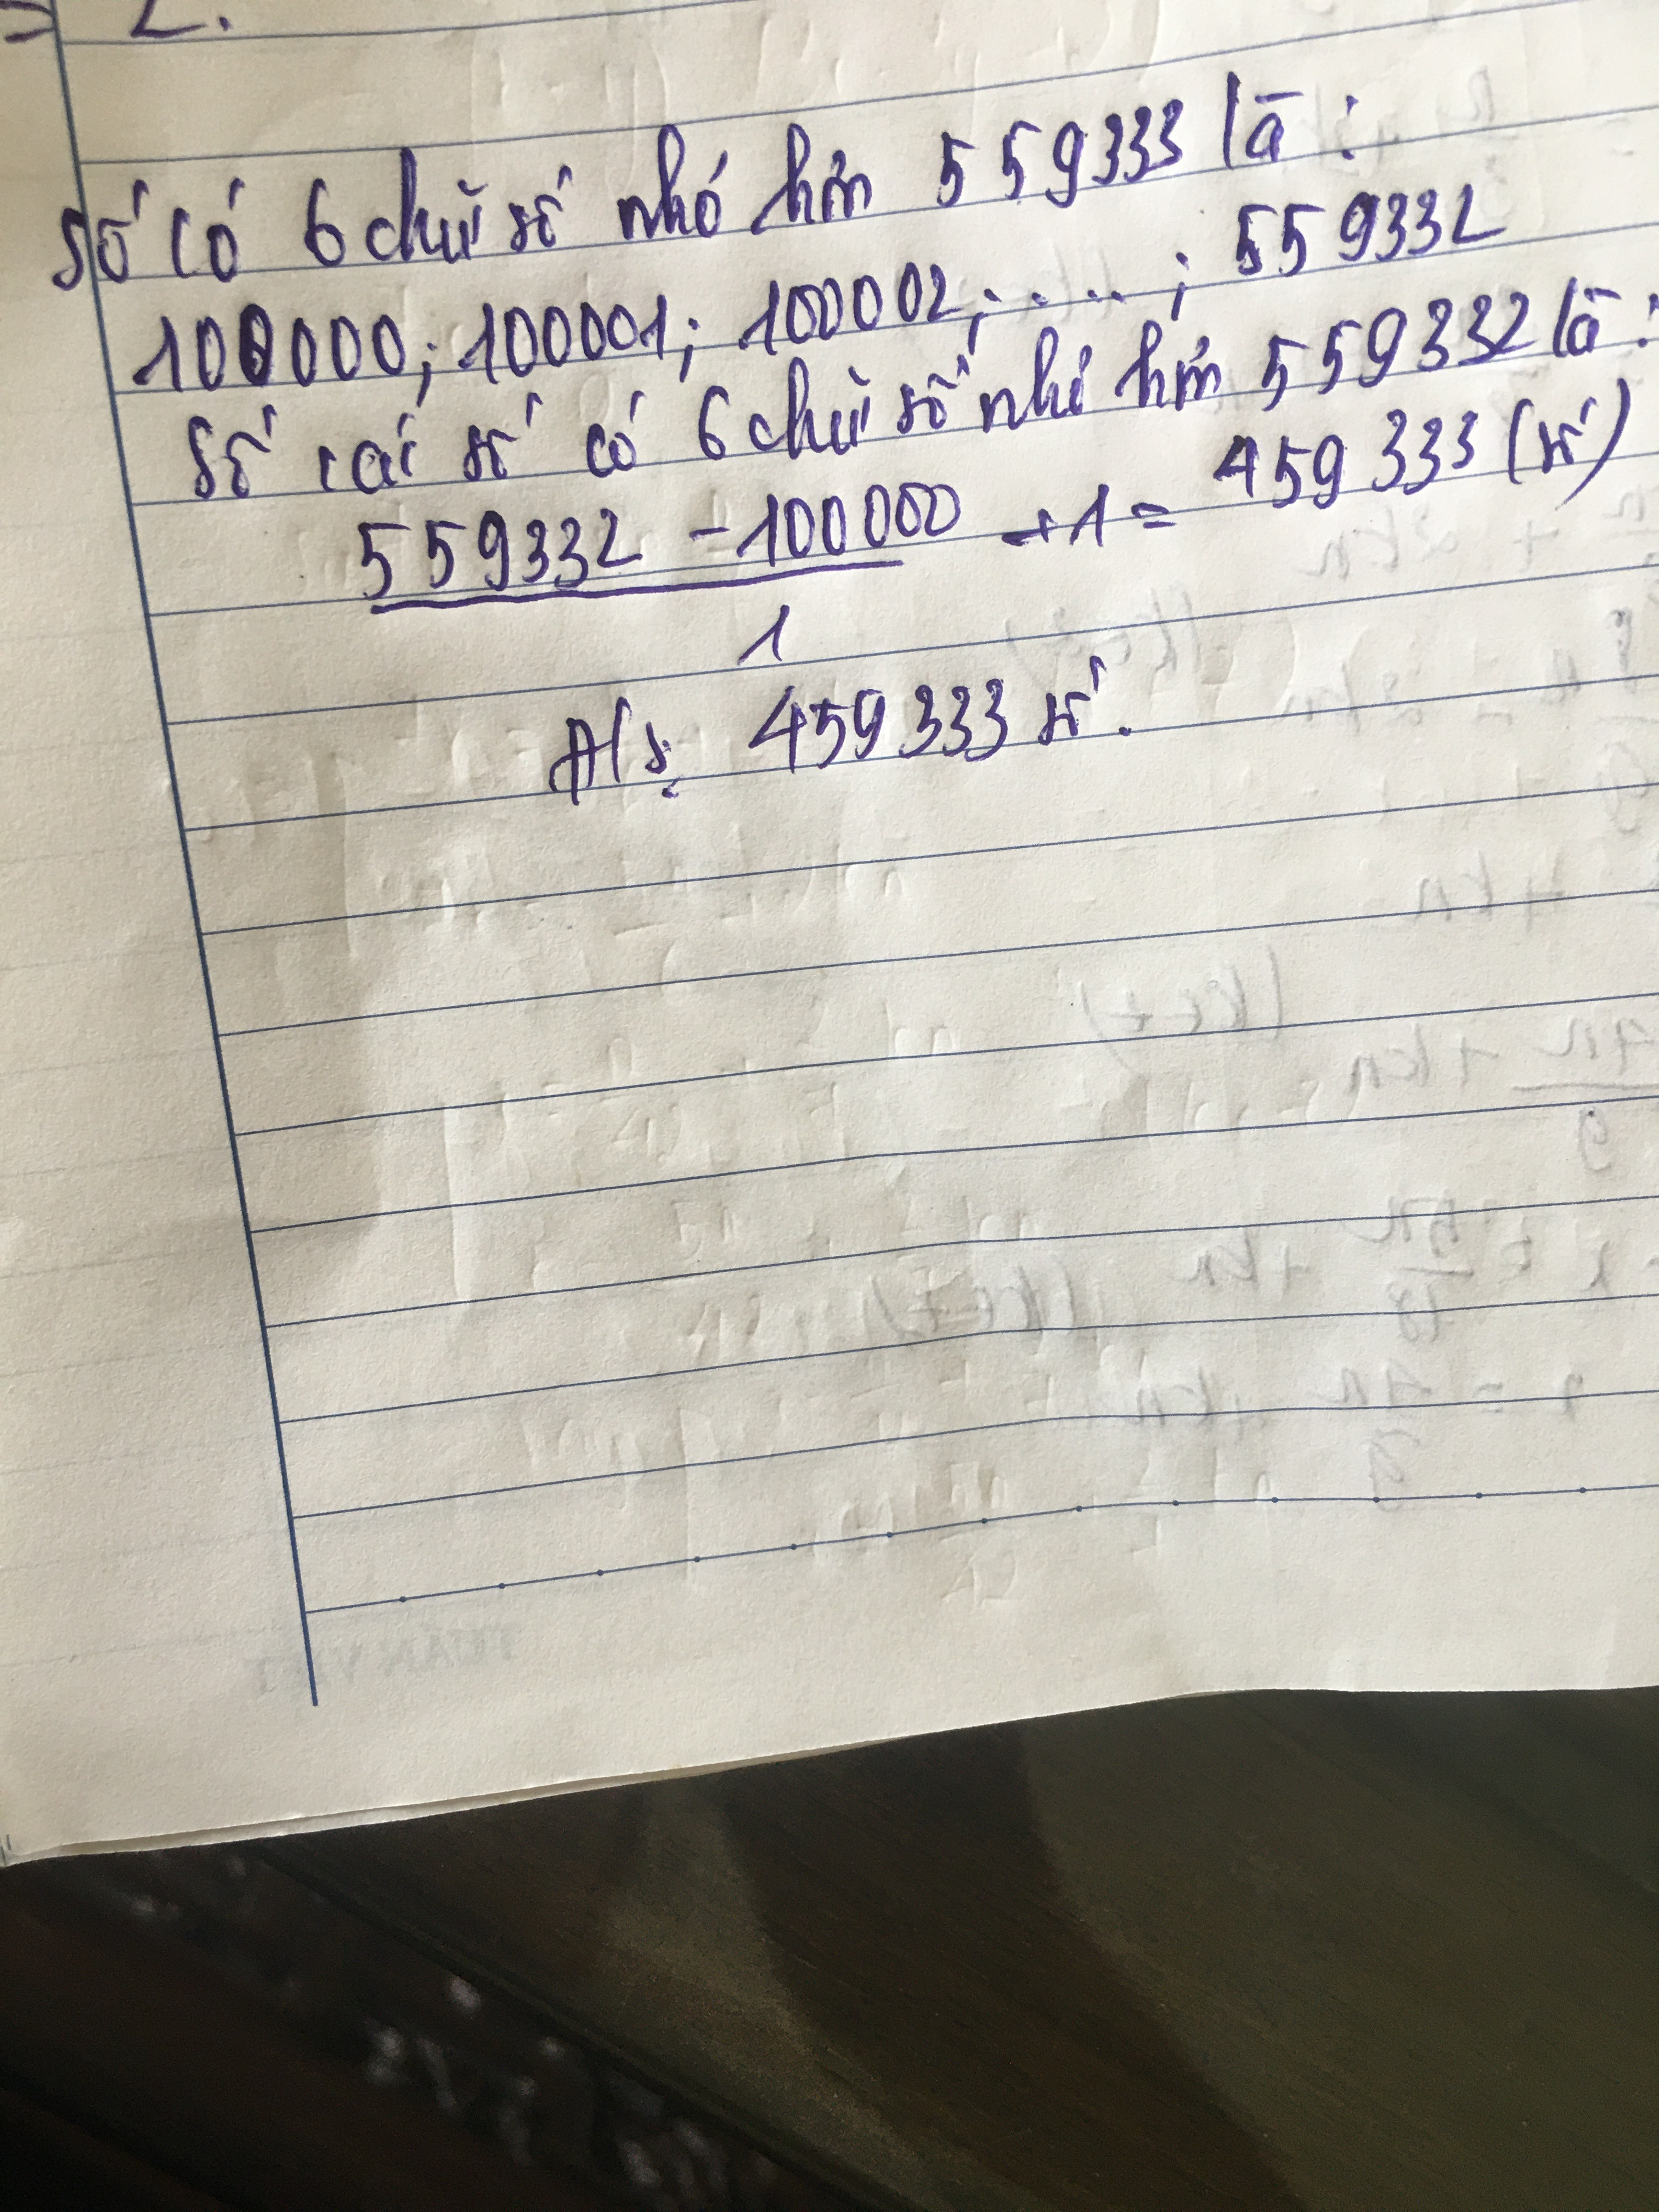 = 2.
Số có 6 chữ số nhỏ hơn 559333 là :
100000; 100001; 100002; . . . . ; 559332
Số các số có 6 chữ số nhỏ hơn 559332 là :
559332 - 100000 + 1 = 459333 (số)
1
Đ/s: 459333 số.